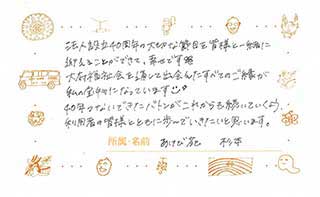 法人設立40周年の大切な節目を皆様と一緒に
迎えることができて、幸せです
大府福祉会を通して出会えたすべてのご縁が
私の宝物になっています
40年つないできたバトンがこれからも続いていくよう、
利用者の皆様とともに歩んでいきたいと思います。
所属・名前 あけび苑 杉本